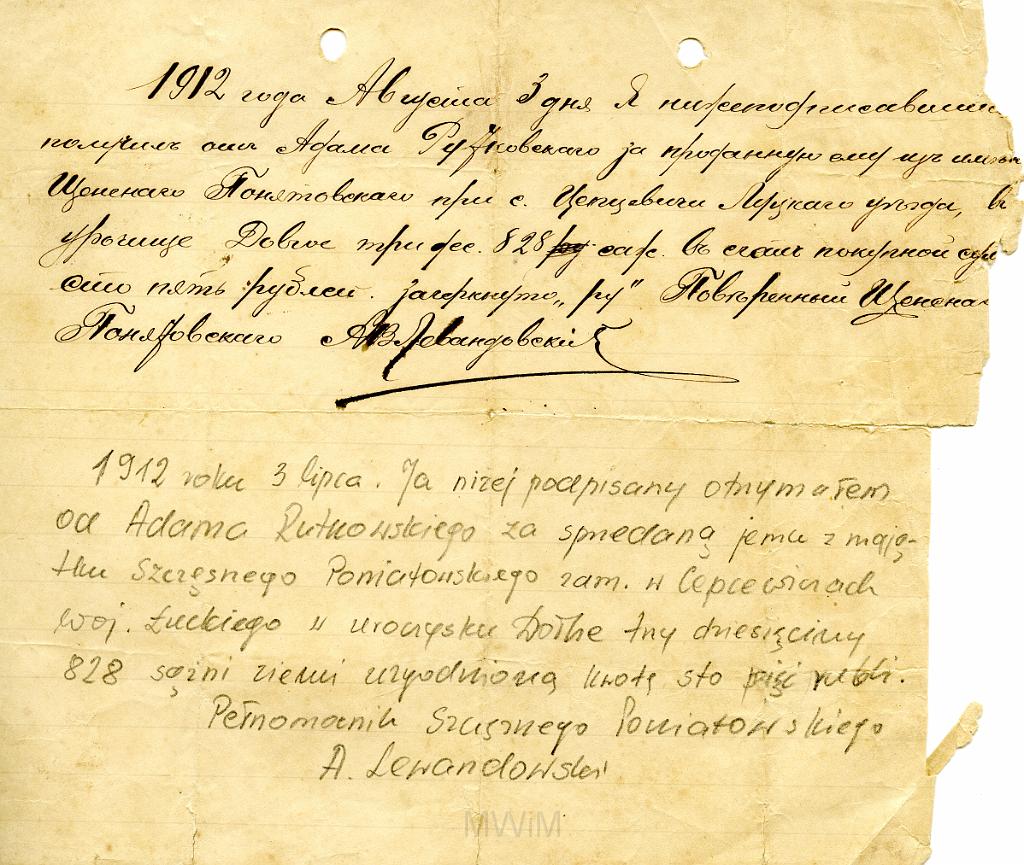 1912 года Августа 3 дня Я нижеподписавшийся
получилъ отъ Адама Рутковскаго за проданную ему изъ имѣн
Щенснаго Понятовскаго при с. Цепцевичи Луцкаго уѣзда, въ
урочище Довгое три дес. 828 ру саж. въ счетъ покупной сум
сто пять рублей. зачеркнуто „ру" Повѣренный Щенсна
Понятовскаго А В Левандовскій
1912 roku 3 lipca. Ja niżej podpisany otrzymałem
od Adama Rutkowskiego za sprzedaną jemu z mają-
tku Szczęsnego Poniatowskiego zam. w Cepcewiczach
woj. Łuckiego w uroczysku Dołhe trzy dziesięciny
828 sążni ziemi uzgodnioną kwotę sto pięć rubli.
Pełnomocnik Szczęsnego Poniatowskiego
A. Lewandowski
MWiM